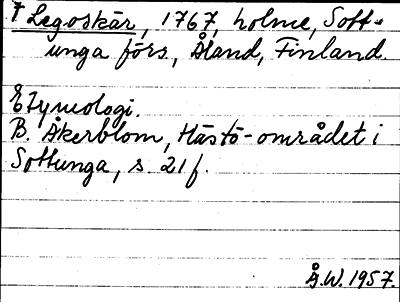 † Legoskär, 1767, holme, Sott-
unga förs., Åland, Finland.
Etymologi.
B. Åkerblom, Hästö-området i
Sottunga, s. 21 f.
Å.W. 1957.